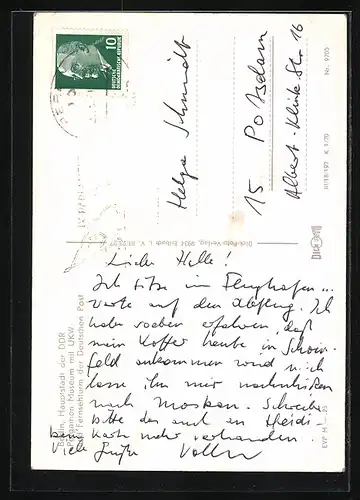 10
DEUTSCHE DEMOKRATISCHE REPUBLIK
Helga Schmidt
15 Potsdam
Albert-Klink-Str. 16
Nr. 9705
III/18/197 K 1/70
Dick-Foto-Verlag, 9934 Erlbach i. V.
EVP M -,25
Berlin, Hauptstadt der DDR
Pergamon-Museum mit UKW-
und Fernsehturm der Deutschen Post
Liebe Helle!
Ich sitze im Flughafen ...
warte auf den Abflug. Ich
habe soeben erfahren, daß
mein Koffer heute in Schöne-
feld ankommen wird u. ich
lasse ihn mir nachschicken
nach Moskau. Schreibe
bitte das auch an Heidi -
keine Karte mehr vorhanden.
Viele Grüße